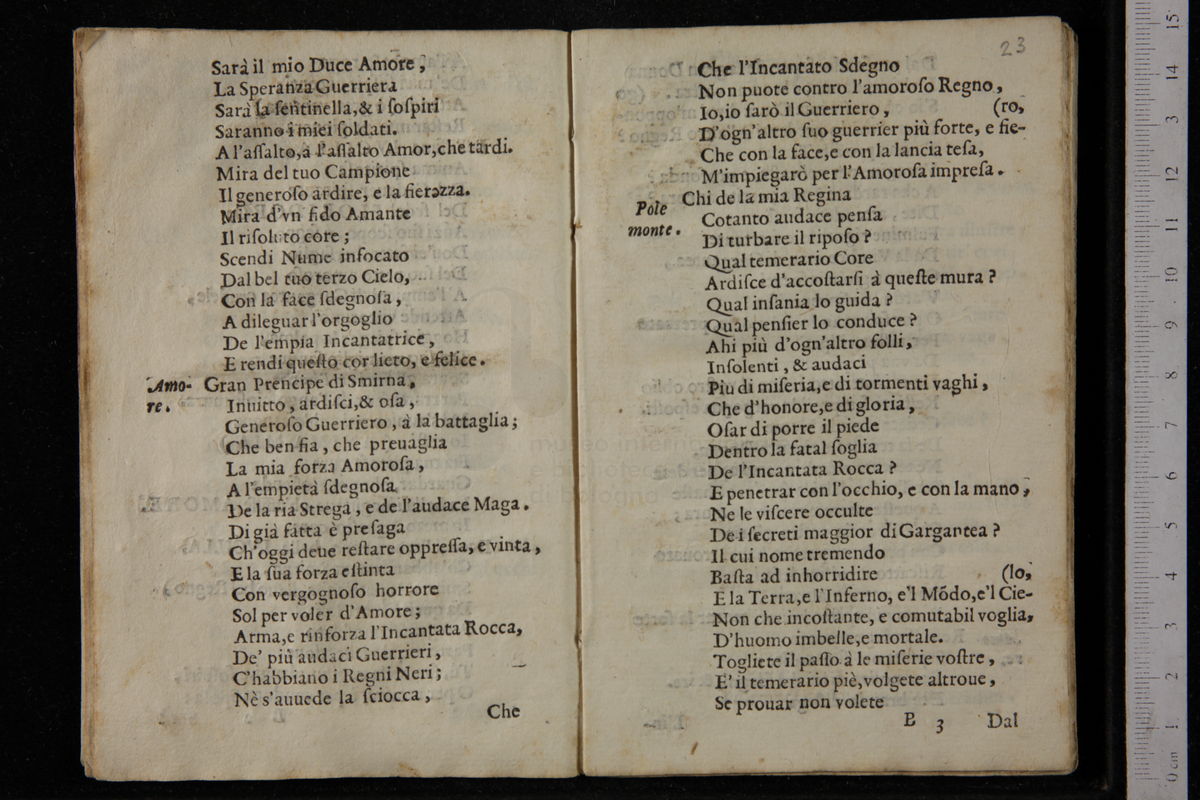 Sarà il mio Duce Amore,
La Speranza Guerriera
Sarà la ſentinella,& i ſoſpiri
Saranno i miei ſoldati.
A l'aſſalto,à l'aſſalto Amor,che tardi.
Mira del tuo Campione
Il generoſo ardire, e la fierezza.
Mira d'vn fido Amante
Il riſoluto core;
Scendi Nume infocato
Dal bel tuo terzo Cielo,
Con la face ſdegnoſa,
A dileguar l'orgoglio
De l'empia Incantatrice,
E rendi queſto cor lieto, e felice.
Amo- Gran Prencipe di Smirna,
re. Inuitto, ardiſci,& oſa,
Generoſo Guerriero, à la battaglia;
Che ben fia, che preuaglia
La mia forza Amoroſa,
A l'empietà ſdegnoſa
De la ria Strega, e de l'audace Maga.
Di già fatta è preſaga
Ch'oggi deue reſtare oppreſſa, e vinta,
E la ſua forza eſtinta
Con vergognoſo horrore
Sol per voler d'Amore;
Arma,e rinforza l'Incantata Rocca,
De' più audaci Guerrieri,
C'habbiano i Regni Neri;
Nè s'auuede la ſciocca,
Che
23
Che l'Incantato Sdegno
Non puote contro l'amoroſo Regno,
Io,io ſarò il Guerriero, (ro,
D'ogn'altro ſuo guerrier più forte, e fie-
Che con la face,e con la lancia teſa,
M'impiegarò per l'Amoroſa impreſa.
Pole Chi de la mia Regina
monte. Cotanto audace penſa
Di turbare il ripoſo?
Qual temerario Core
Ardiſce d'accoſtarſi à queſte mura?
Qual inſania lo guida?
Qual penſier lo conduce?
Ahi più d'ogn'altro folli,
Inſolenti, & audaci
Piu di miſeria,e di tormenti vaghi,
Che d'honore,e di gloria,
Oſar di porre il piede
Dentro la fatal ſoglia
De l'Incantata Rocca?
E penetrar con l'occhio, e con la mano,
Ne le viſcere occulte
De i ſecreti maggior di Gargantea?
Il cui nome tremendo
Baſta ad inhorridire (lo,
E la Terra,e l'Inferno, e'l Mõdo,e'l Cie-
Non che incoſtante, e comutabil voglia,
D'huomo imbelle,e mortale.
Togliete il paſſo à le miſerie voſtre,
E' il temerario piè,volgete altroue,
Se prouar non volete
B 3 Dal
0 cm 1 2 3 4 5 6 7 8 9 10 11 12 13 14 15